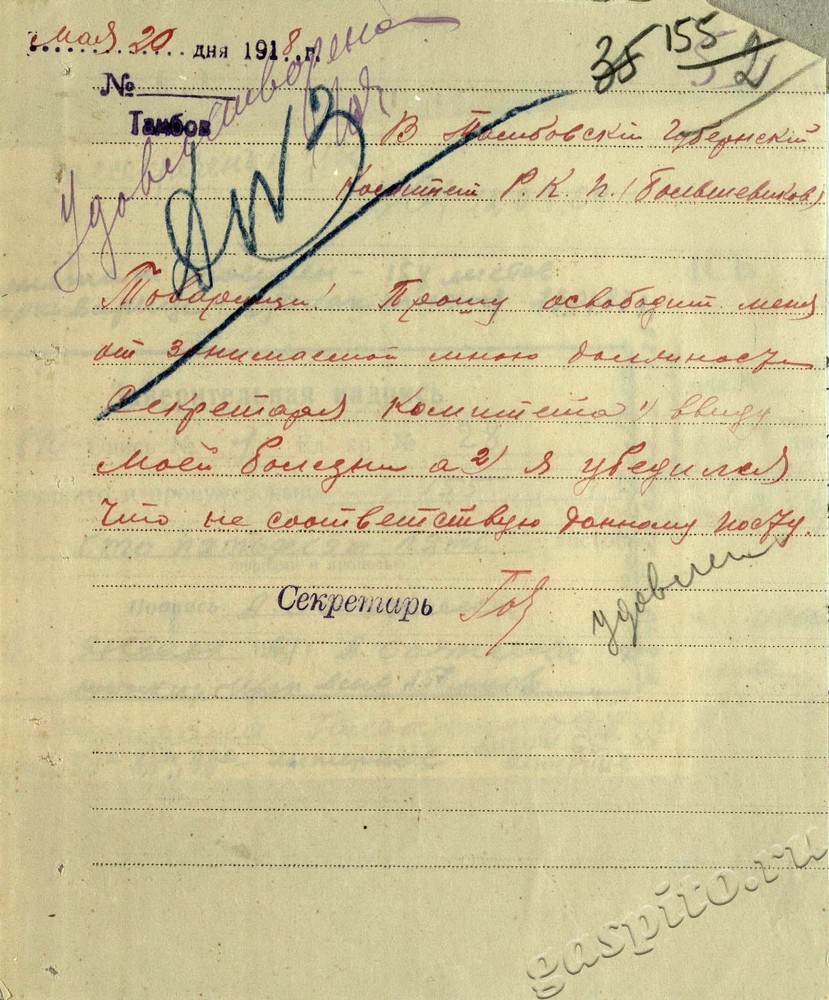 мая 20 дня 1918 г.
№
Тамбов
35 155
2
Удовлетворена
В Тамбовскій Губернскій
Комитет Р.К.П. (Большевиков)
Товарищи! Прошу освободит меня
от занимаемой мною должности
Секретаря комитета 1) ввиду
моей болезни а 2) я убедился
что не соответствую данному посту.
Секретарь
удовлет
gaspito.ru